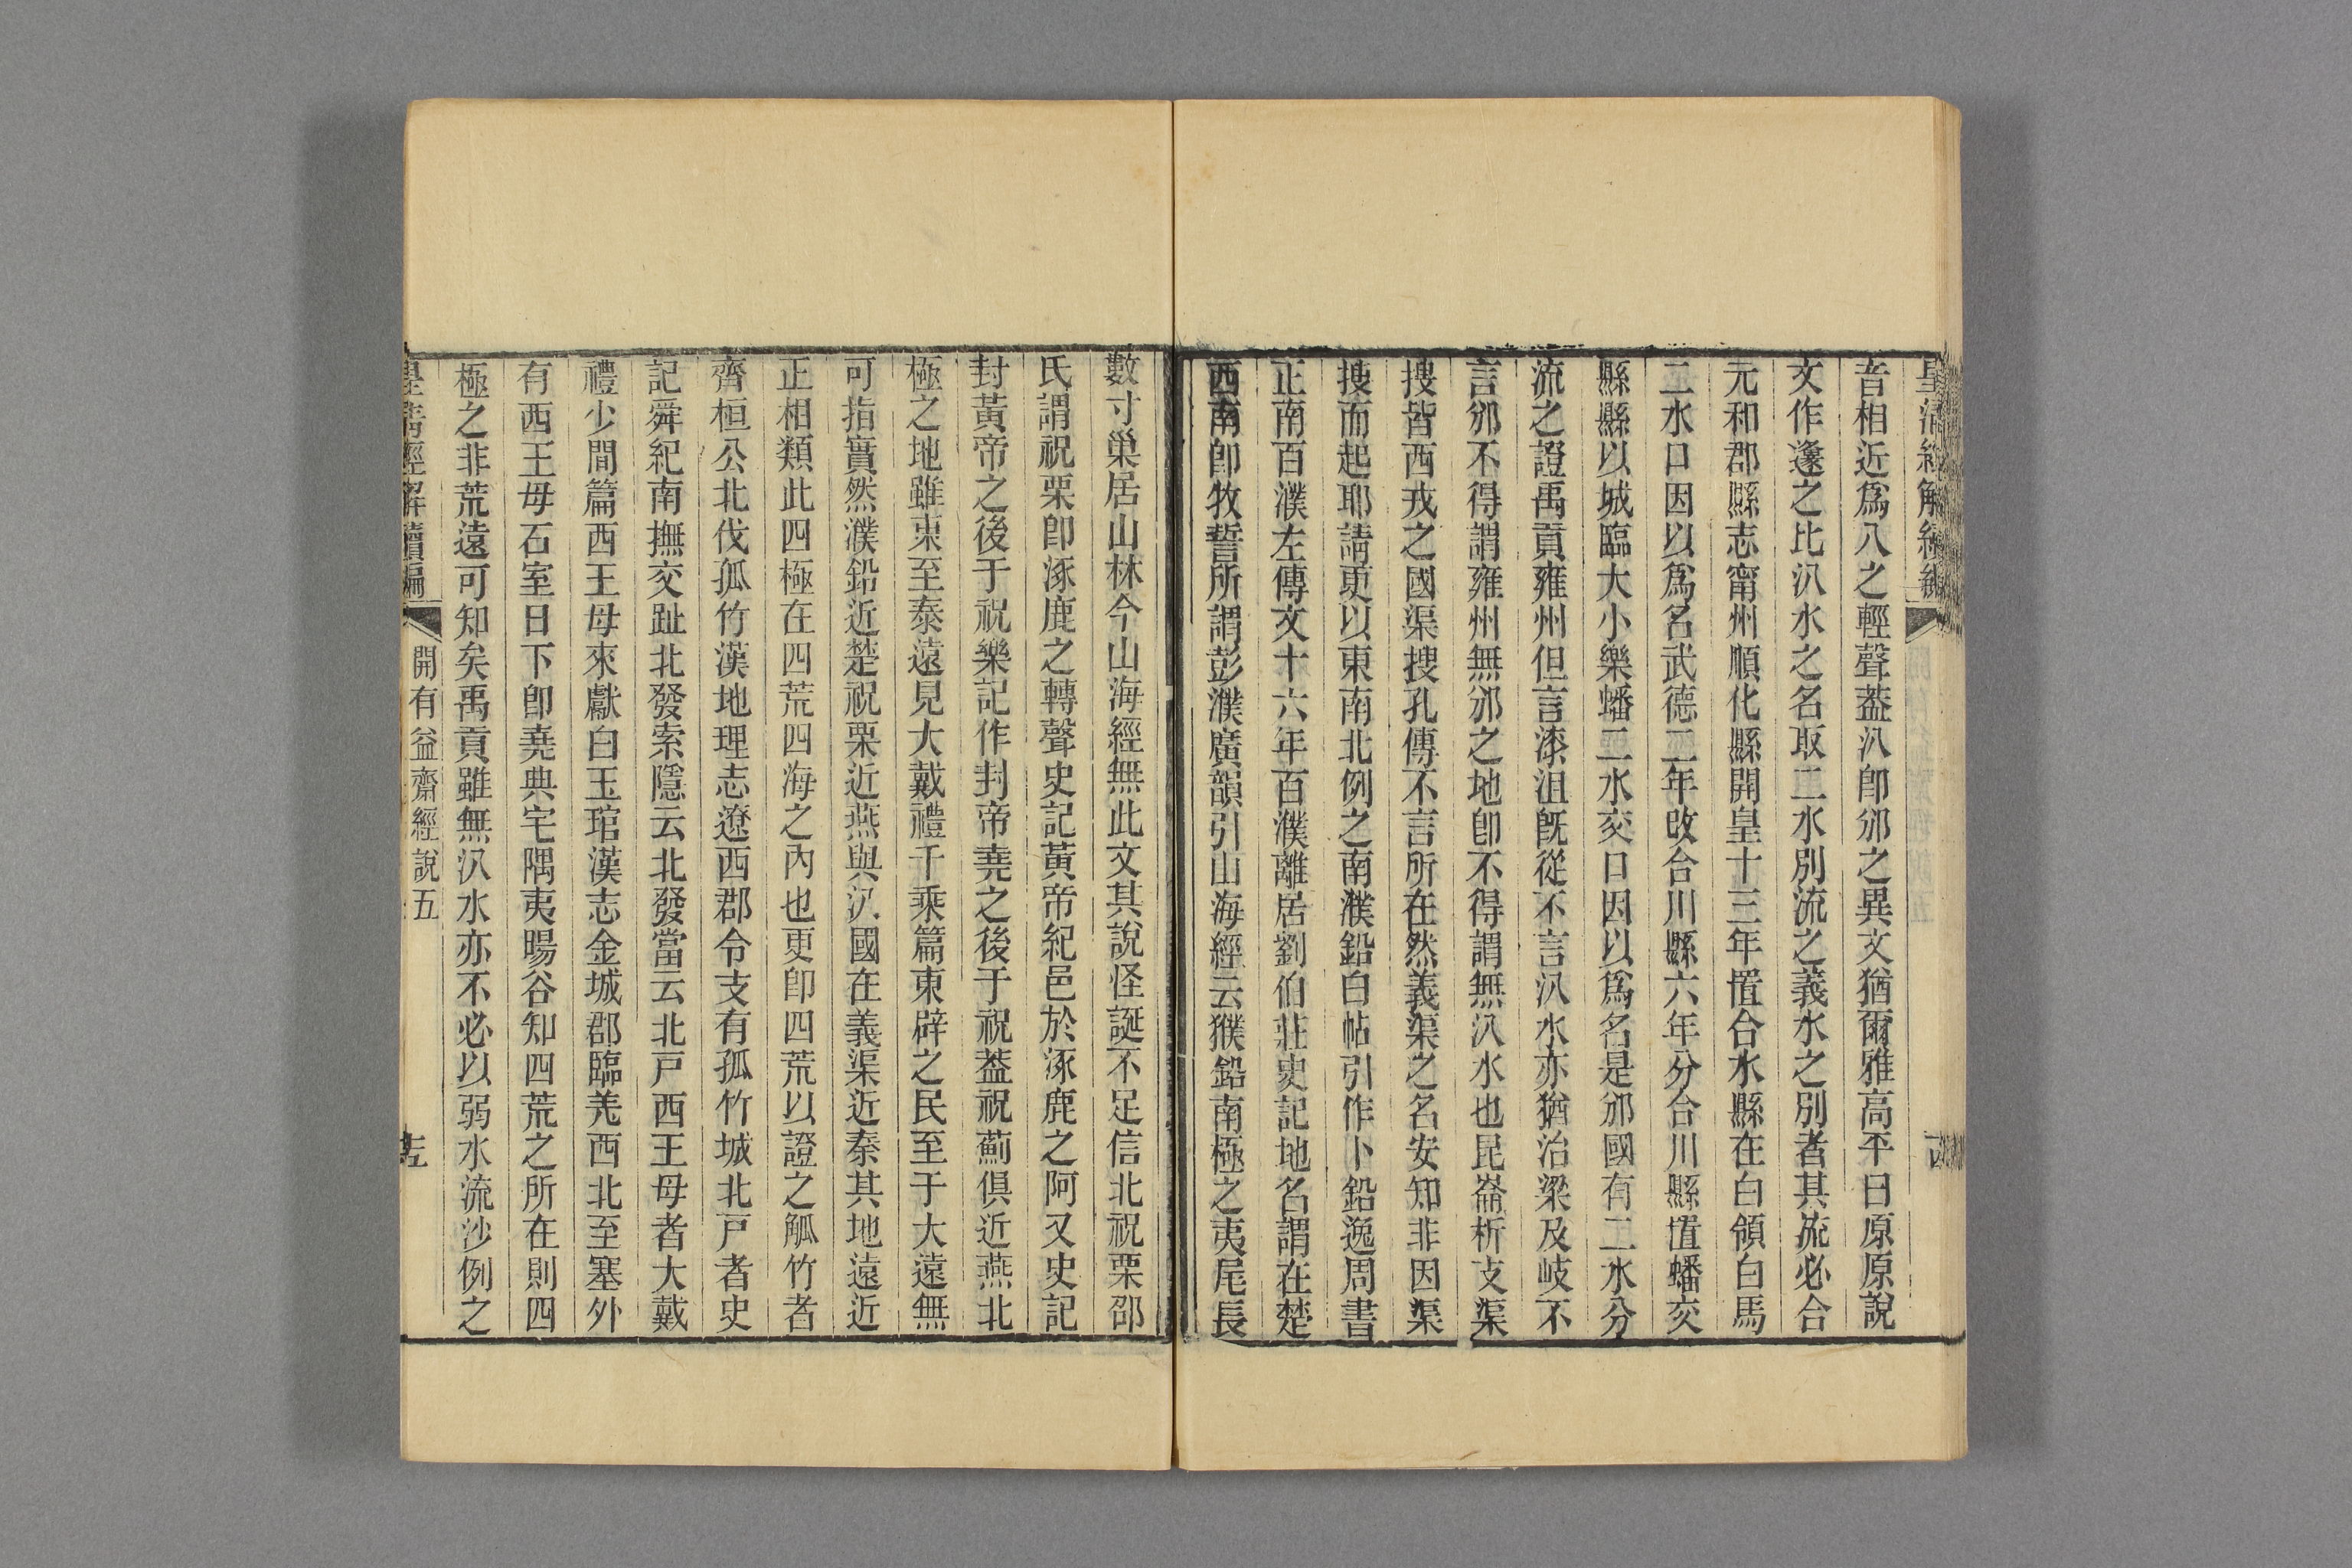 皇清經解續編
音相近爲八之輕聲葢汃卽邠之異文猶爾雅高平曰原原說
文作邍之比汃水之名取二水別流之義水之別者其流必合
元和郡縣志甯州順化縣開皇十三年置合水縣在白領白馬
二水口因以爲名武德二年改合川縣六年分合川縣置蟠交
縣縣以城臨大小樂蟠二水交口因以爲名是邠國有二水分
流之證禹貢雍州但言漆沮旣從不言汃水亦猶治梁及岐不
言邠不得謂雍州無邠之地卽不得謂無汃水也昆崙析支渠
搜皆西戎之國渠搜孔傳不言所在然義渠之名安知非因渠
搜而起耶請更以東南北例之南濮鉛白帖引作卜鉛逸周書
正南百濮左傳文十六年百濮離居劉伯莊史記地名謂在楚
西南卽牧誓所謂彭濮廣韻引山海經云獛鉛南極之夷尾長
數寸巢居山林今山海經無此文其說怪誕不足信北祝栗邵
氏謂祝栗卽涿鹿之轉聲史記黃帝紀邑於涿鹿之阿又史記
封黃帝之後于祝樂記作封帝堯之後于祝葢祝薊俱近燕北
極之地雖東至泰遠見大戴禮千乘篇東辟之民至于大遠無
可指實然濮鉛近楚祝栗近燕與汃國在義渠近秦其地遠近
正相類此四極在四荒四海之內也更卽四荒以證之觚竹者
齊桓公北伐孤竹漢地理志遼西郡令支有孤竹城北戸者史
記舜紀南撫交趾北發索隱云北發當云北戸西王母者大戴
禮少間篇西王母來獻白玉琯漢志金城郡臨羌西北至塞外
有西王母石室日下卽堯典宅隅夷暘谷知四荒之所在則四
極之非荒遠可知矣禹貢雖無汃水亦不必以弱水流沙例之
皇清經解續編　開有益齋經說五